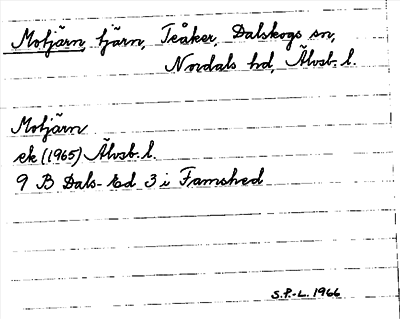 Motjärn, tjärn, Teåker, Dalskogs sn,
Nordals hd, Älvsb. l.
Motjärn
ek (1965) Älvsb. l.
9 B Dals-Ed 3 i Famshed
S.P.-L. 1966